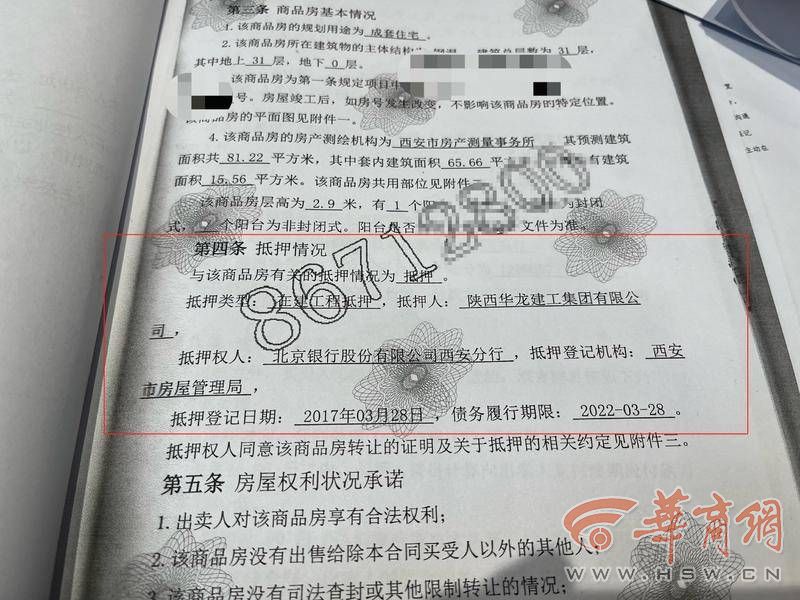 第三条 商品房基本情况
1.该商品房的规划用途为 成套住宅 。
2.该商品房所在建筑物的主体结构为 建筑总层数为 31 层,
其中地上 31 层, 地下 0 层。
该商品房为第一条规定项目中
号。房屋竣工后, 如房号发生改变, 不影响该商品房的特定位置。
该商品房的平面图见附件一。
4.该商品房的房产测绘机构为 西安市房产测量事务所 其预测建筑
面积共 81.22 平方米, 其中套内建筑面积 65.66 平 有建筑
面积 15.56 平方米。该商品房共用部位见附件
该商品房层高为 2.9 米, 有 1 个阳 为封闭
式, 个阳台为非封闭式。阳台是否 文件为准。
8671
第四条 抵押情况
与该商品房有关的抵押情况为 抵押 。
抵押类型: 在建工程抵押 , 抵押人: 陕西华龙建工集团有限公
司 ,
抵押权人: 北京银行股份有限公司西安分行 , 抵押登记机构: 西安
市房屋管理局 ,
抵押登记日期: 2017年03月28日 , 债务履行期限: 2022-03-28 。
抵押权人同意该商品房转让的证明及关于抵押的相关约定见附件三。
第五条 房屋权利状况承诺
1.出卖人对该商品房享有合法权利;
2.该商品房没有出售给除本合同买受人以外的其他人;
3.该商品房没有司法查封或其他限制转让的情况;
華商網
WWW.HSW.CN
主动在